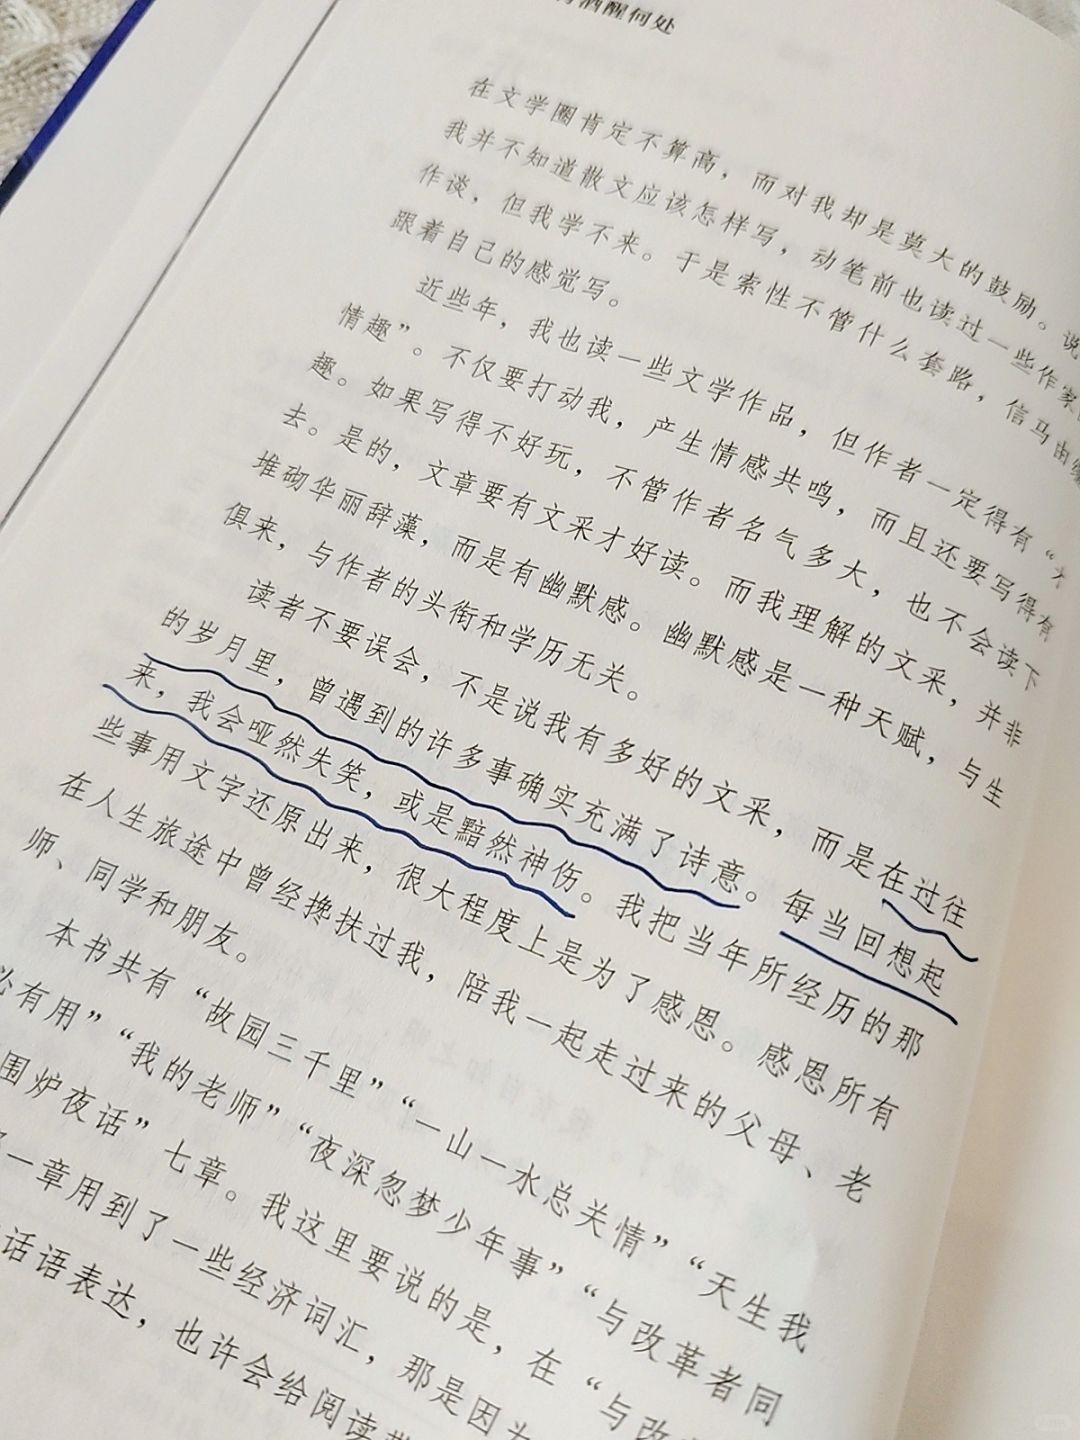 酒醒何处
在文学圈肯定不算高，而对我却是莫大的鼓励。说
我并不知道散文应该怎样写，动笔前也读过一些作家
作谈，但我学不来。于是索性不管什么套路，信马由
跟着自己的感觉写。
近些年，我也读一些文学作品，但作者一定得有“
情趣”。不仅要打动我，产生情感共鸣，而且还要写得有
趣。如果写得不好玩，不管作者名气多大，也不会读下
去。是的，文章要有文采才好读。而我理解的文采，并非
堆砌华丽辞藻，而是有幽默感。幽默感是一种天赋，与生
俱来，与作者的头衔和学历无关。
读者不要误会，不是说我有多好的文采，而是在过往
的岁月里，曾遇到的许多事确实充满了诗意。每当回想起
来，我会哑然失笑，或是黯然神伤。我把当年所经历的那
些事用文字还原出来，很大程度上是为了感恩。感恩所有
在人生旅途中曾经搀扶过我，陪我一起走过来的父母、老
师、同学和朋友。
本书共有“故园三千里”“一山一水总关情”“天生我
必有用”“我的老师”“夜深忽梦少年事”“与改革者同
围炉夜话”七章。我这里要说的是，在“与改
一章用到了一些经济词汇，那是因为
话语表达，也许会给阅读